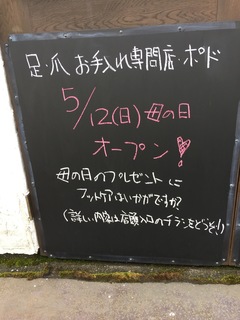 足・爪 お手入れ専門店・ポド
5/12(日) 母の日
オープン!
母の日のプレゼントに
フットケアはいかがですか?
(詳しい内容は店頭入口のチラシをどうぞ!)